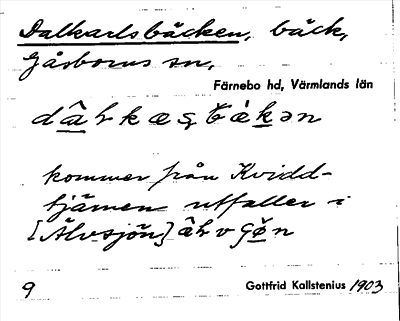 Dalkarlsbäcken, bäck,
Gåsborns sn,
Färnebo hd, Värmlands län
kommer från Kvidd-
tjärnen utfaller i
[Älvsjön]
9
Gottfrid Kallstenius 1903